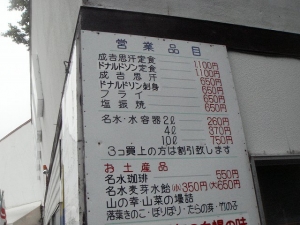 営業品目
成吉思汗定食 1100円
ドナルドソン定食 1100円
成吉思汗 650円
ドナルドソン刺身 650円
フライ 650円
塩振焼 650円
名水・水容器2ℓ 260円
4ℓ 370円
10ℓ 750円
3っ買上の方は割引致します
お土産品
名水珈琲 550円
名水麦芽水飴 (小)350円 (大)650円
山の幸・山菜の壜詰
落葉きのこ・ぼりぼり・たらの芽・竹の子